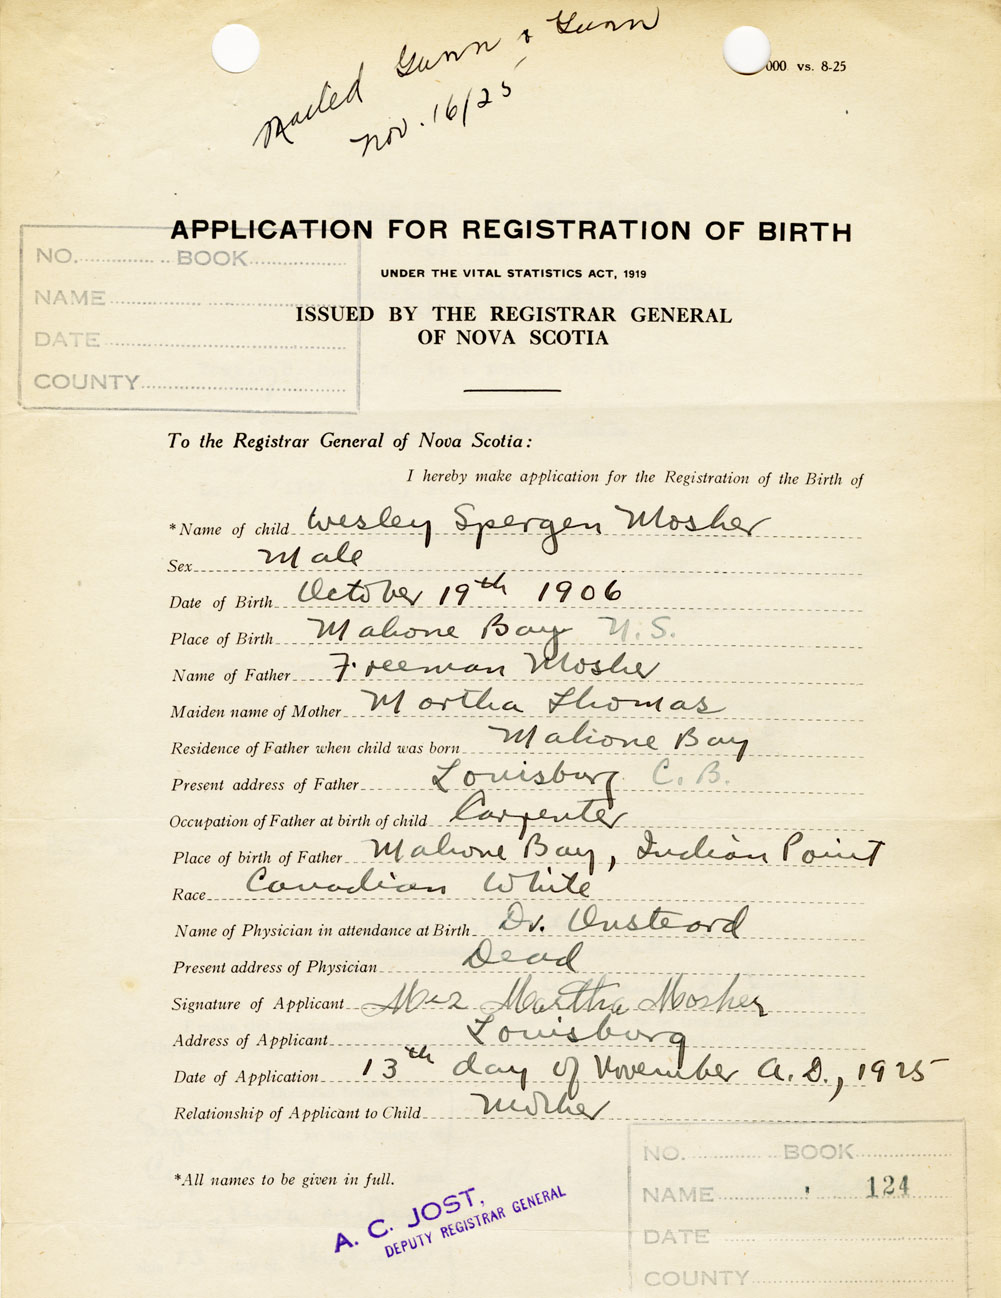 Mailed Gunn & Gunn
Nov. 16/25
000 vs. 8-25
APPLICATION FOR REGISTRATION OF BIRTH
UNDER THE VITAL STATISTICS ACT, 1919
ISSUED BY THE REGISTRAR GENERAL
OF NOVA SCOTIA
NO. BOOK
NAME
DATE
COUNTY
To the Registrar General of Nova Scotia:
I hereby make application for the Registration of the Birth of
*Name of child Wesley Spergen Mosher
Sex Male
Date of Birth October 19th 1906
Place of Birth Mahone Bay N.S.
Name of Father Freeman Mosher
Maiden name of Mother Martha Thomas
Residence of Father when child was born Mahone Bay
Present address of Father Louisburg C.B.
Occupation of Father at birth of child Carpenter
Place of birth of Father Mahone Bay, Indian Point
Race Canadian White
Name of Physician in attendance at Birth Dr.
Present address of Physician Dead
Signature of Applicant Mrs Martha Mosher
Address of Applicant Louisburg
Date of Application 13th day of November A.D., 1925
Relationship of Applicant to Child Mother
*All names to be given in full.
A. C. JOST,
DEPUTY REGISTRAR GENERAL
NO. BOOK
NAME 124
DATE
COUNTY